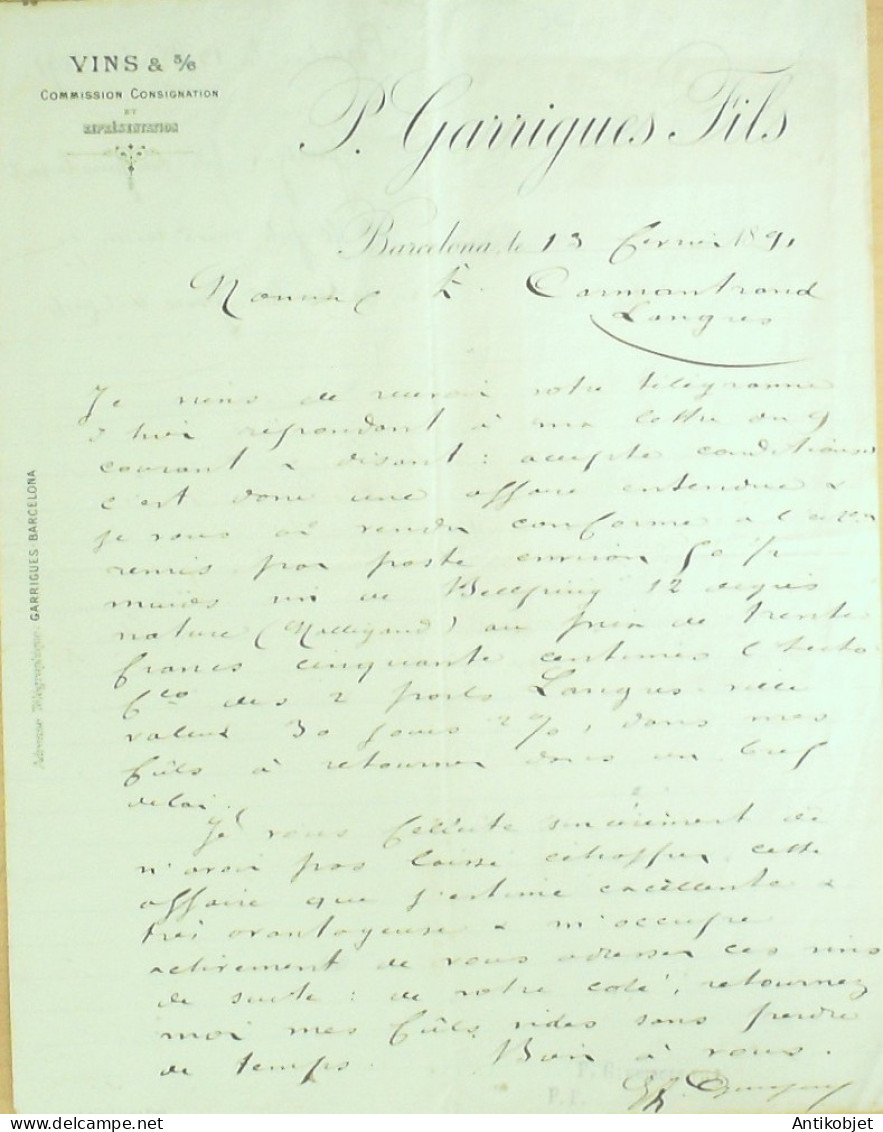 VINS & 3/6
COMMISSION CONSIGNATION
ET
REPRÉSENTATION
P. Garrigues Fils
Barcelona, le 13 février 1891
Monsieur E. Cormantrand
Langres
Adresse Télégraphique: GARRIGUES BARCELONA
Je viens de recevoir votre télégramme
d'hier répondant à ma lettre du 9
courant & disant: accepte conditions
c'est donc une affaire entendue &
je vous ai vendu conforme à l'éch
remis par poste environ 50
muids vin de 12 degrés
nature ( ) au prix de trente
francs cinquante centimes l'hecto
fco des 2 ports Langres ville
valeur 30 jours 2%, dans mes
fûts à retourner dans un bref
délai.
Je vous félicite sincèrement de
n'avoir pas laissé échapper cette
affaire que j'estime excellente &
très avantageuse & m'occupe
activement de vous adresser ces vins
de suite: de votre coté, retournez
moi mes fûts vides sans perdre
de temps. Bien à vous.
P. P.
Antikobjet